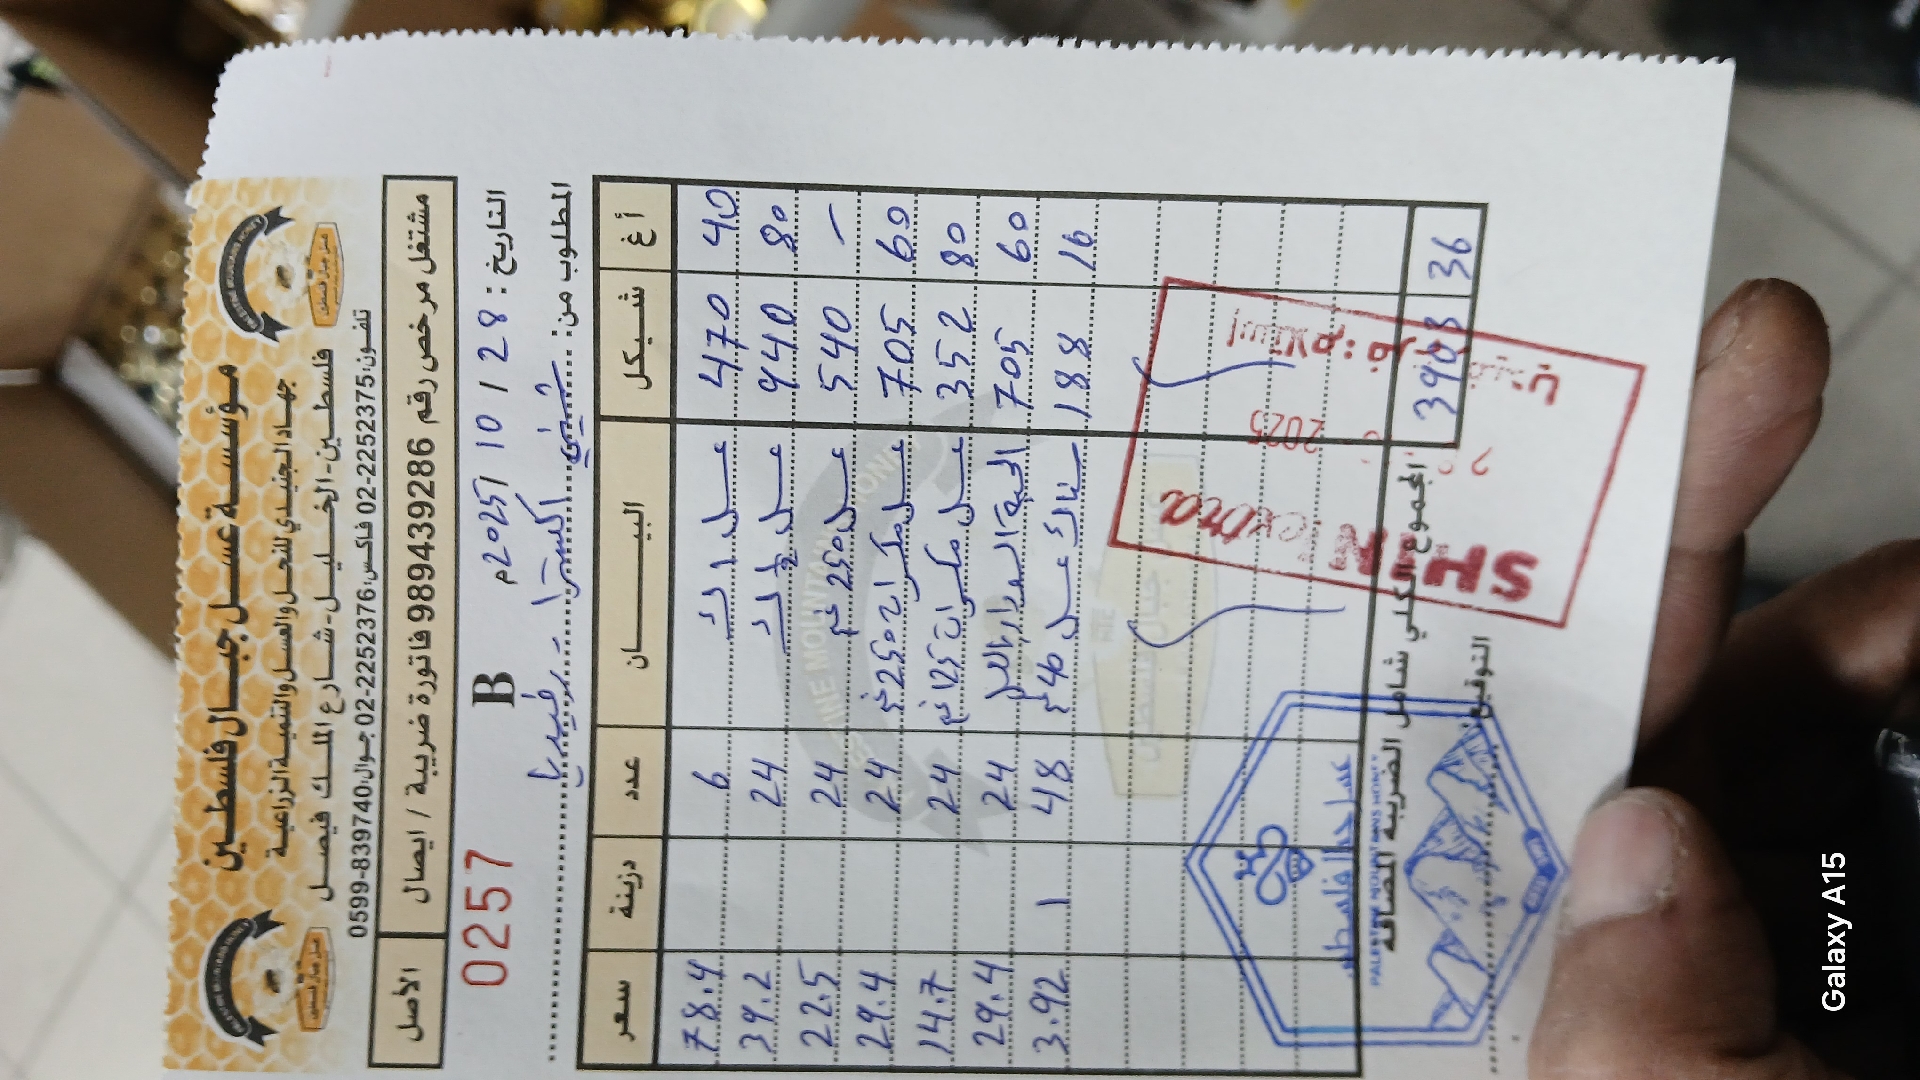 مؤسسة عسل جبال فلسطين
جهاد الجنيدي للنحل والعسل والتنمية الزراعية
فلسطين - الخليل - شارع الملك فيصل
تلفون: 02-2252375 فاكس: 02-2252376 جوال: 0599-839740
مشتغل مرخص رقم 989439286 فاتورة ضريبة / ايصال الأصل
التاريخ: 28 / 10 / 2025م B 0257
المطلوب من: شيني اكسترا - رفيديا
أغ شيكل البيان عدد دزينة سعر
40 470 عسل 1 ك 6 78.4
80 940 عسل ½ ك 24 39.2
- 540 عسل 250 غم 24 22.5
60 705 عسل مكسرات 250 غم 24 29.4
80 352 عسل مكسرات 125 غم 24 14.7
60 705 24 29.4
16 188 عسل 40 غم 48 1 3.92
36 3903 المجموع الكلي شامل الضريبة المضافة
التوقيع
SHINI extra
2025
عسل جبال فلسطين
PALESTINE MOUNTAINS HONEY
Galaxy A15